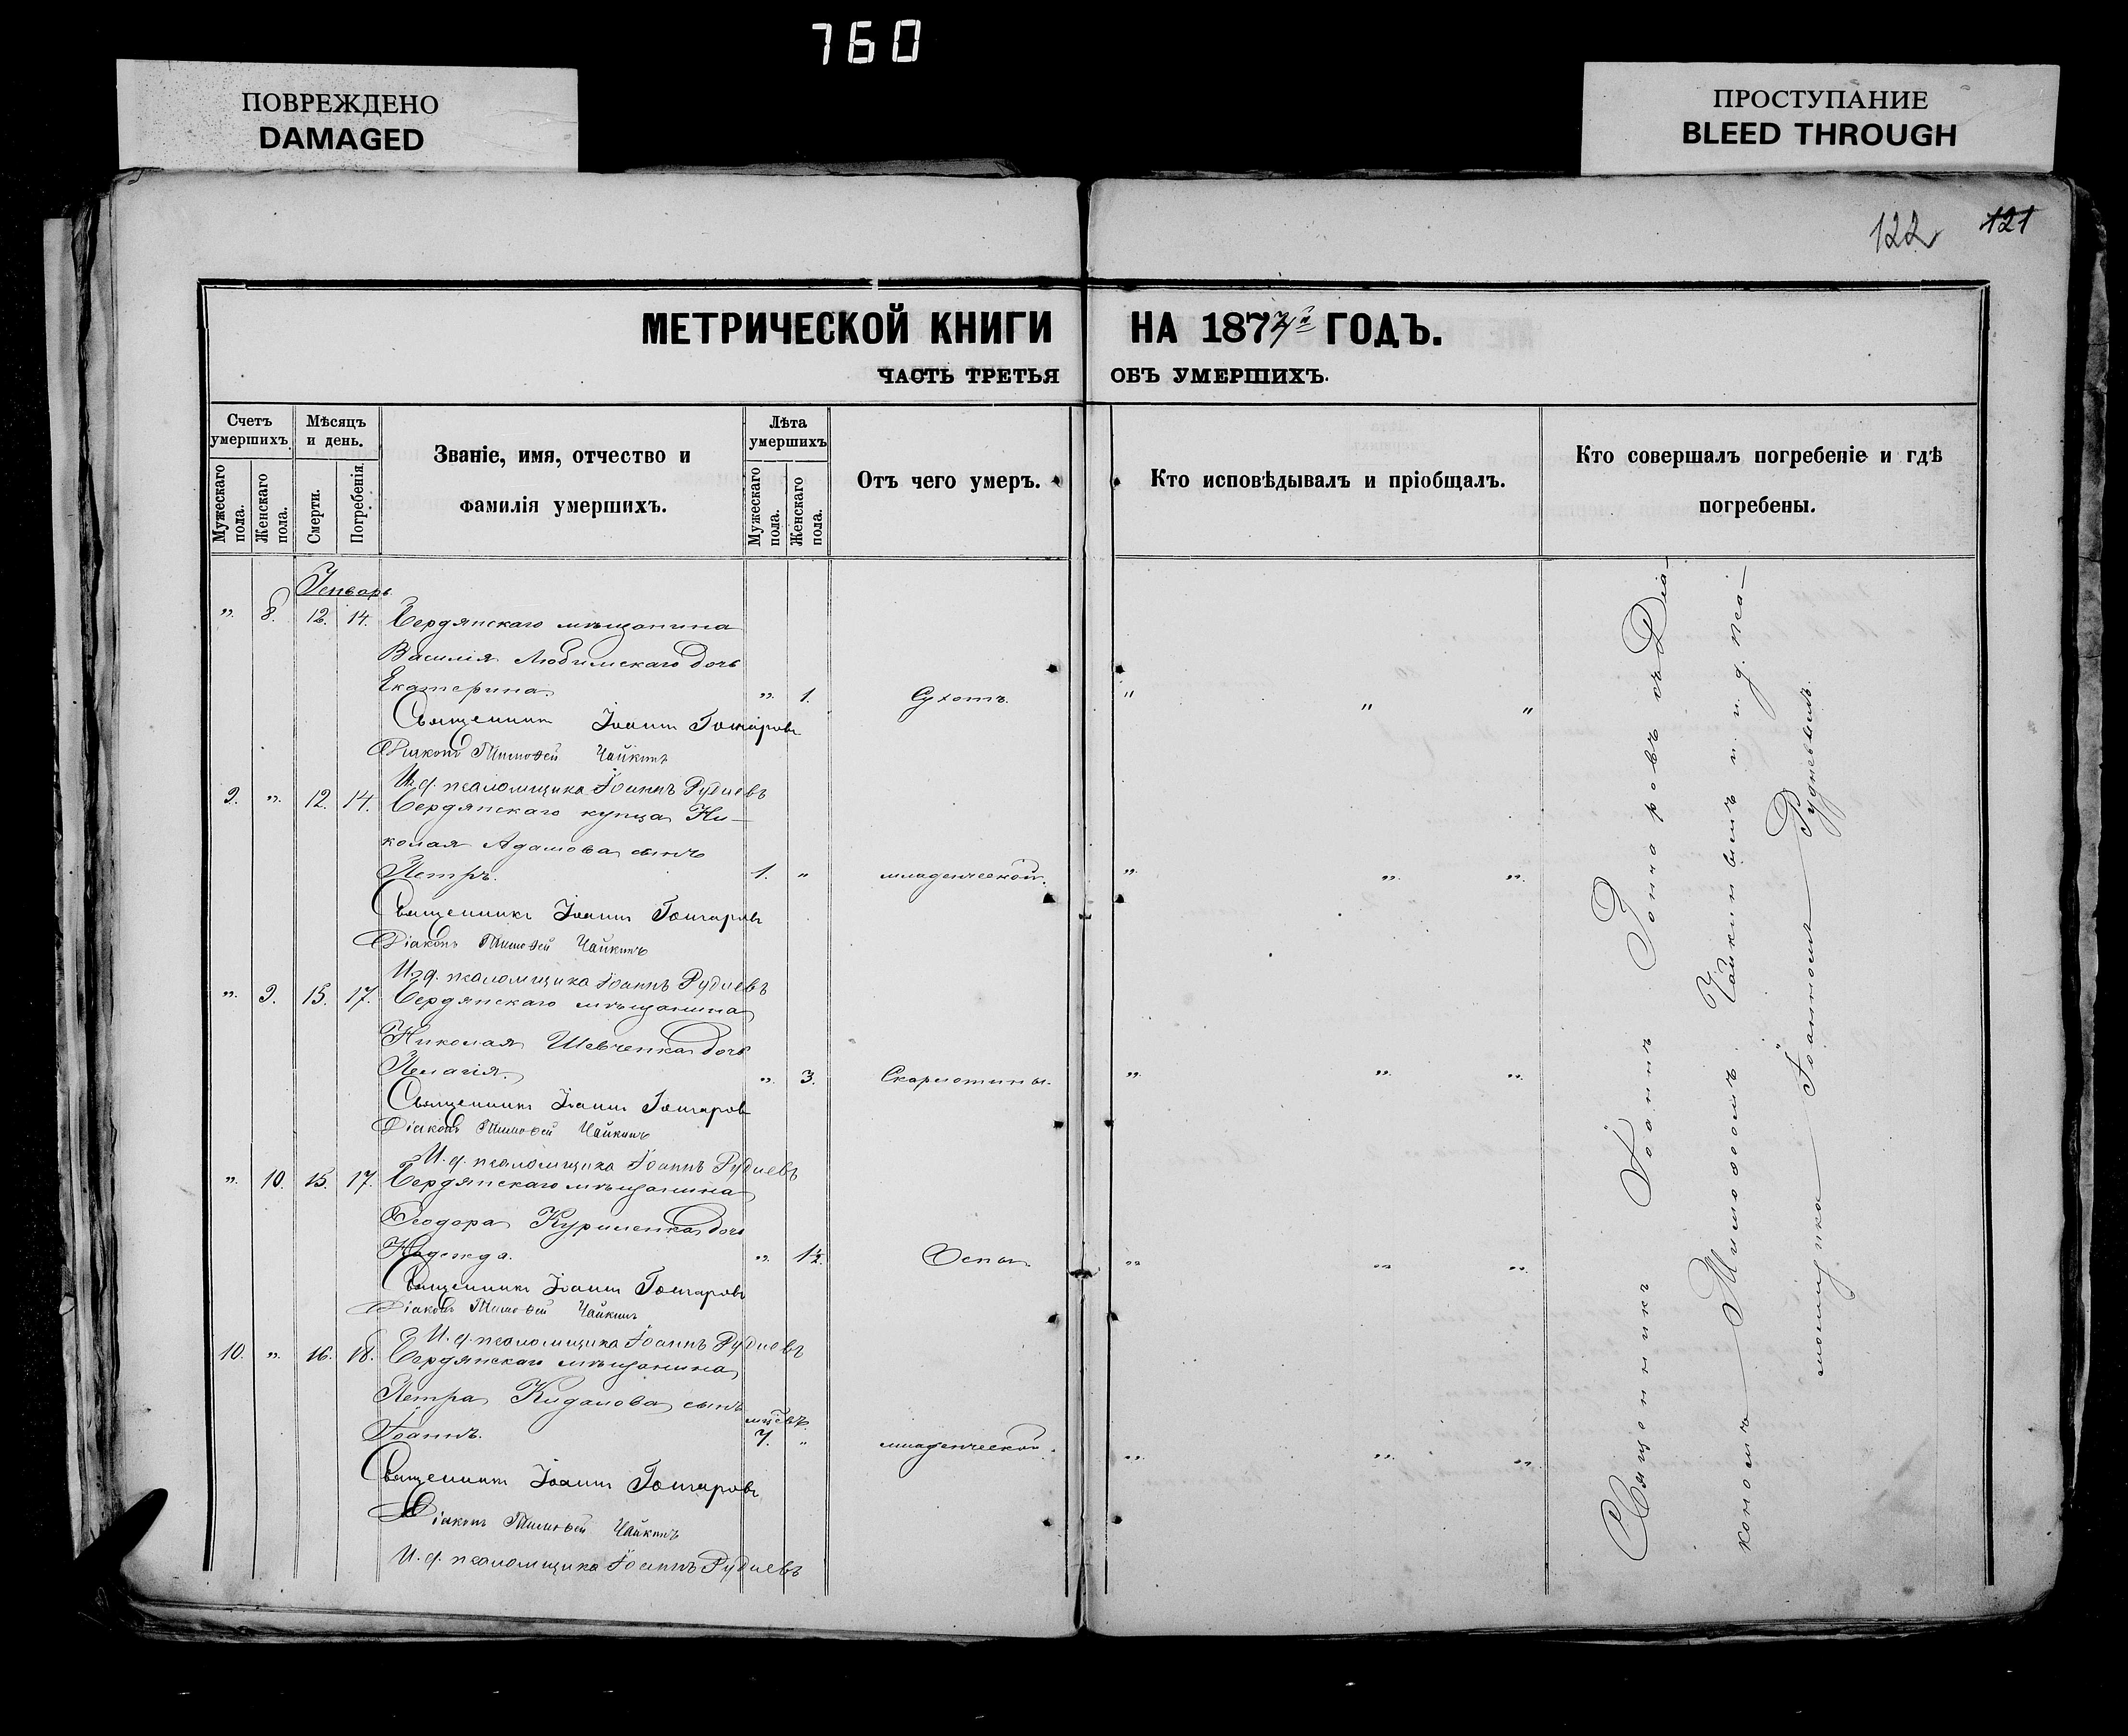 760
ПОВРЕЖДЕНО
DAMAGED
ПРОСТУПАНИЕ
BLEED THROUGH
122 121
МЕТРИЧЕСКОЙ КНИГИ НА 1877й ГОДЪ.
ЧАСТЬ ТРЕТЬЯ ОБЪ УМЕРШИХЪ.
Счетъ умершихъ.
Мужескаго пола.
Женскаго пола.
Мѣсяцъ и день.
Смерти.
Погребенія.
Званіе, имя, отчество и
фамилія умершихъ.
Лѣта умершихъ
Мужескаго пола.
Женскаго пола.
Отъ чего умеръ.
Кто исповѣдывалъ и пріобщалъ.
Кто совершалъ погребеніе и гдѣ
погребены.
Генварь
„ 8. 12. 14. Бердянскаго мѣщанина
Василія Любимскаго дочь
Екатерина. „ 1. Сухотъ. „ „ „
Священникъ Іоаннъ Гончаровъ
Діаконъ Тимоѳей Чайкинъ
И. д. псаломщика Іоаннъ Рудневъ
9. „ 12. 14. Бердянскаго купца Ни-
колая Адамова сынъ
Петръ. 1. „ младенческой. „ „ „
Священникъ Іоаннъ Гончаровъ
Діаконъ Тимоѳей Чайкинъ
И. д. псаломщика Іоаннъ Рудневъ
„ 9. 15. 17. Бердянскаго мѣщанина
Николая Шевченка дочь
Пелагія. „ 3. Скарлотины. „ „ „
Священникъ Іоаннъ Гончаровъ
Діаконъ Тимоѳей Чайкинъ
И. д. псаломщика Іоаннъ Рудневъ
„ 10. 15. 17. Бердянскаго мѣщанина
Ѳеодора Куриленка дочь
Надежда. „ 1½. Оспы. „ „ „
Священникъ Іоаннъ Гончаровъ
Діаконъ Тимоѳей Чайкинъ
И. д. псаломщика Іоаннъ Рудневъ
10. „ 16. 18. Бердянскаго мѣщанина
Петра Кидалова сынъ
Іоаннъ. 7. „ младенческой. „ „ „
Священникъ Іоаннъ Гончаровъ
Діаконъ Тимоѳей Чайкинъ
И. д. псаломщика Іоаннъ Рудневъ
Священникъ Іоаннъ Гончаровъ съ Діа-
кономъ Тимоѳеемъ Чайкинымъ и и. д. пса-
ломщика Іоанномъ Рудневымъ.